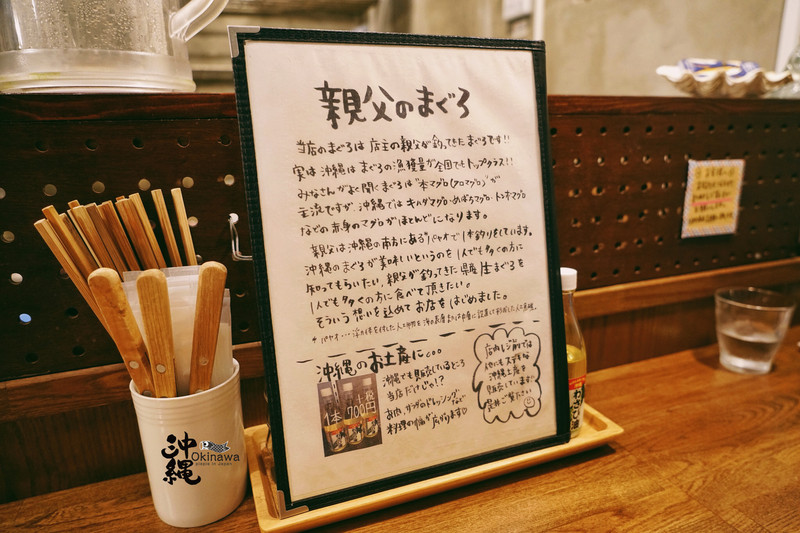 親父のまぐろ
当店のまぐろは店主の親父が釣ってきたまぐろです!!
実は沖縄はまぐろの漁獲量が全国でもトップクラス!!
みなさんがよく聞くまぐろは"本マグロ(クロマグロ)"が
主流ですが、沖縄ではキハダマグロ・めばちマグロ・トンボマグロ
などの赤身のマグロがほとんどになります。
親父は沖縄の南方にあるパヤオで1本釣りをしています。
沖縄のまぐろが美味しいというのを1人でも多くの方に
知ってもらいたい、親父が釣ってきた県産生まぐろを
1人でも多くの方に食べて頂きたい。
そういう想いを込めてお店をはじめました。
沖縄のお土産に。。。
沖縄でも販売しているところ
当店だけじゃ!?
お肉、サラダのドレッシングなど
料理の幅が広がります♡
1本 700円
店内レジ前では
他にもステキな
沖縄土産を
販売しています!
是非ご覧ください
沖縄
Okinawa
made in Japan
わさび